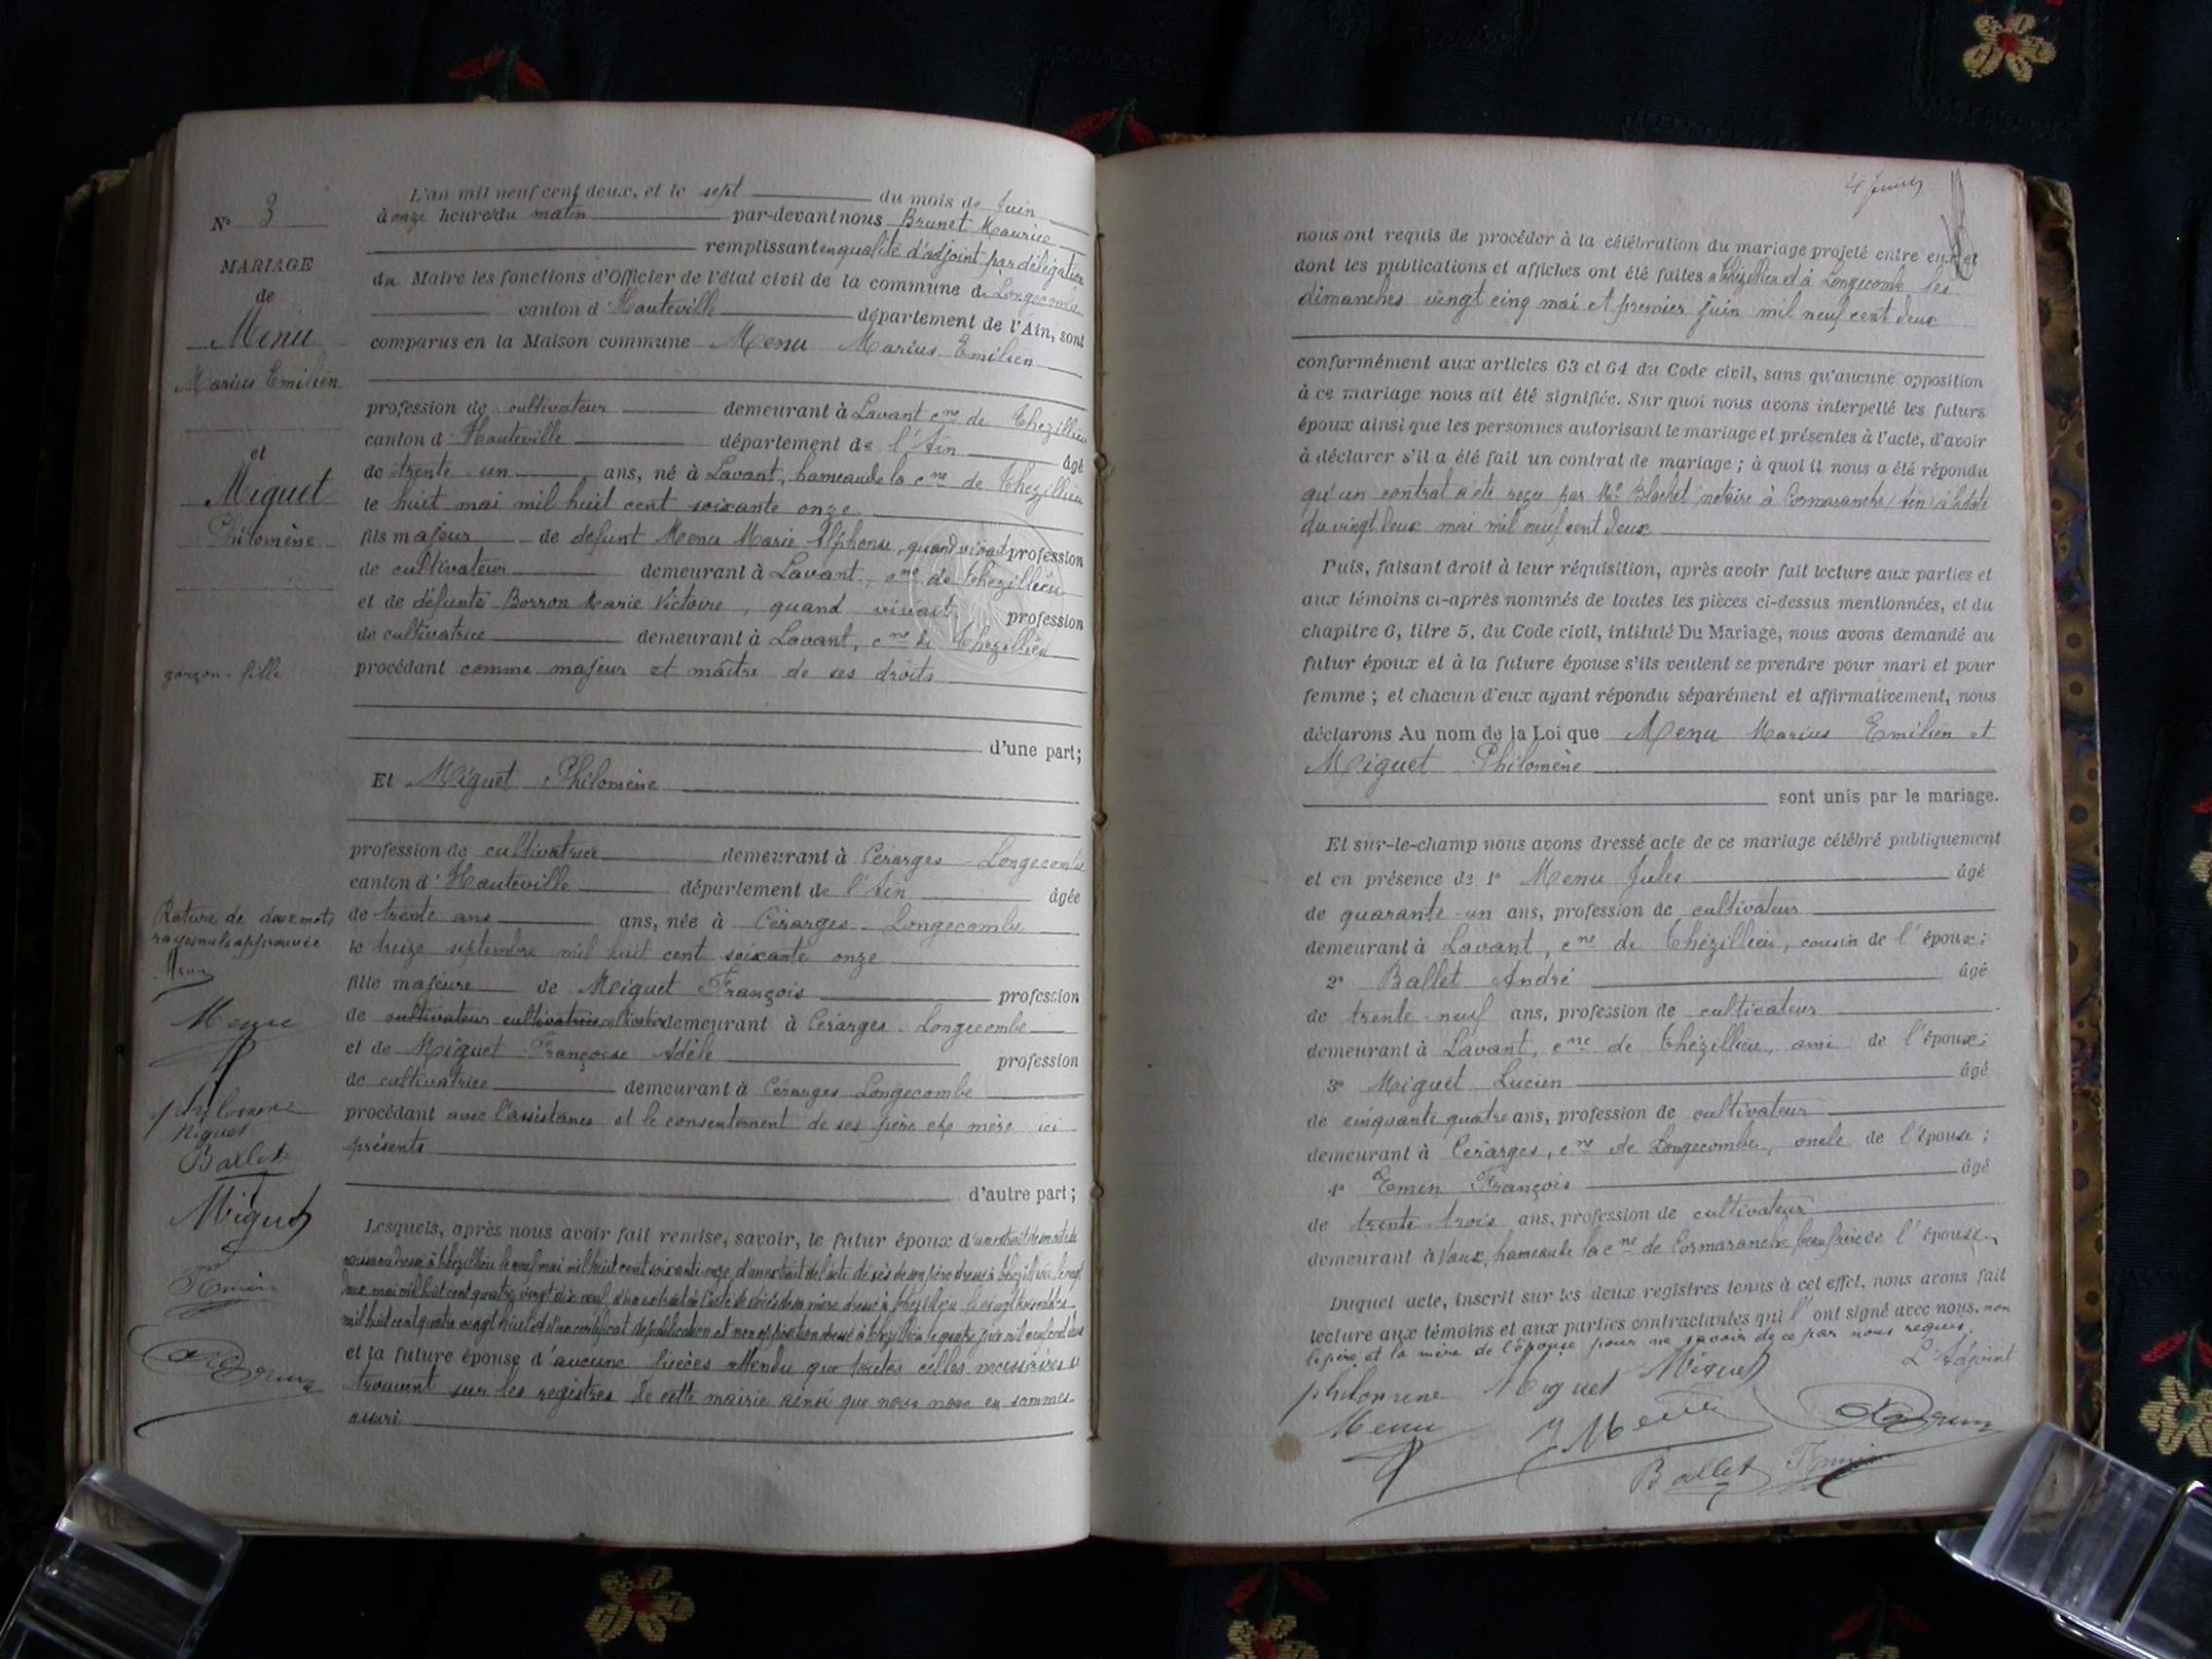 N° 3
MARIAGE
de
Menu
Marius Emilien
et
Miguet
Philomène
garçon - fille
Rature de deux mots
rayés nuls approuvée
Menu
Philomene
Miguet
Ballet
Miguet
L'an mil neuf cent deux, et le sept du mois de Juin
à onze heures du matin par-devant nous Brunet Maurice
remplissant en qualité d'adjoint par délégation
du Maire les fonctions d'Officier de l'état civil de la commune de Longecombe
canton d'Hauteville département de l'Ain, sont
comparus en la Maison commune Menu Marius Emilien
profession de cultivateur demeurant à Lavant cne de Thezillieu
canton d'Hauteville département de l'Ain âgé
de trente-un ans, né à Lavant, hameau de la cne de Thezillieu
le huit mai mil huit cent soixante onze
fils majeur de defunt Menu Marie Alphonse, quand vivait profession
de cultivateur demeurant à Lavant cne de Thezillieu
et de défunte Borron Marie Victoire, quand vivait profession
de cultivatrice demeurant à Lavant, cne de Thezillieu
procédant comme majeur et maître de ses droits
d'une part;
Et Miguet Philomène
profession de cultivatrice demeurant à Cérarges - Longecombe
canton d'Hauteville département de l'Ain âgée
de trente ans ans, née à Cérarges - Longecombe
le treize septembre mil huit cent soixante onze
fille majeure de Miguet François profession
de cultivateur cultivatrice cultivateur demeurant à Cérarges - Longecombe
et de Miguet Françoise Adèle profession
de cultivatrice demeurant à Cérarges Longecombe
procédant avec l'assistance et le consentement de ses père et mère ici
présents
d'autre part;
Lesquels, après nous avoir fait remise, savoir, le futur époux d'un extrait de son acte de
naissance dressé à Thezillieu le neuf mai mil huit cent soixante onze, d'un extrait de l'acte de décès de son père dressé à Thezillieu le vingt
deux mai mil huit cent quatre vingt dix neuf d'un extrait de l'acte de décès de sa mère dressé à Thezillieu le vingt
mil huit cent quatre vingt huit et d'un certificat de publication et non opposition dressé à Thezillieu le quatre juin mil neuf cent deux
et la future épouse d'aucune pièces attendu que toutes celles necessaires se
trouvent sur les registres de cette mairie ainsi que nous nous en sommes
assuré
4 feuillet
nous ont requis de procéder à la célébration du mariage projeté entre eux et
dont les publications et affiches ont été faites à Thézillieu et à Longecombe les
dimanches vingt cinq mai et premier juin mil neuf cent deux
conformément aux articles 63 et 64 du Code civil, sans qu'aucune opposition
à ce mariage nous ait été signifiée. Sur quoi nous avons interpellé les futurs
époux ainsi que les personnes autorisant le mariage et présentes à l'acte, d'avoir
à déclarer s'il a été fait un contrat de mariage; à quoi il nous a été répondu
qu'un contrat a été reçu par Me Blachet notaire à Cormaranche (Ain) à la date
du vingt deux mai mil neuf cent deux
Puis, faisant droit à leur réquisition, après avoir fait lecture aux parties et
aux témoins ci-après nommés de toutes les pièces ci-dessus mentionnées, et du
chapitre 6, titre 5, du Code civil, intitulé Du Mariage, nous avons demandé au
futur époux et à la future épouse s'ils veulent se prendre pour mari et pour
femme; et chacun d'eux ayant répondu séparément et affirmativement, nous
déclarons Au nom de la Loi que Menu Marius Emilien et
Miguet Philomène
sont unis par le mariage.
Et sur-le-champ nous avons dressé acte de ce mariage célébré publiquement
et en présence de 1° Menu Jules âgé
de quarante-un ans, profession de cultivateur
demeurant à Lavant, cne de Thézillieu, cousin de l'époux;
2° Ballet André âgé
de trente-neuf ans, profession de cultivateur
demeurant à Lavant, cne de Thézillieu, ami de l'époux;
3° Miguet Lucien âgé
de cinquante quatre ans, profession de cultivateur
demeurant à Cérarges, cne de Longecombe, oncle de l'épouse;
4° Emin François âgé
de trente trois ans, profession de cultivateur
demeurant à Vaux, hameau de la cne de Cormaranche beau frère de l'épouse.
Duquel acte, inscrit sur les deux registres tenus à cet effet, nous avons fait
lecture aux témoins et aux parties contractantes qui l'ont signé avec nous, non
le père et la mère de l'épouse pour ne savoir de ce par nous requis.
L'Adjoint
philomene Miguet Miguet
Menu J Menu
Ballet